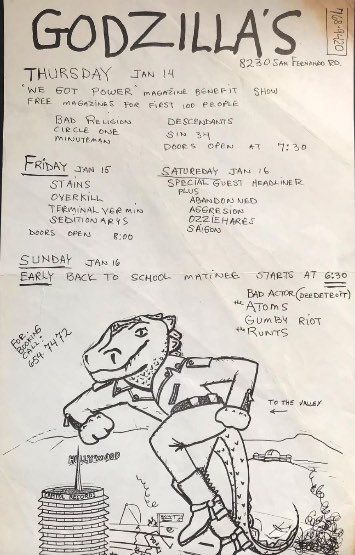 GODZILLA'S
768-9420
8230 SAN FERNANDO RD.
THURSDAY JAN 14
"WE GOT POWER" MAGAZINE BENEFIT SHOW
FREE MAGAZINES FOR FIRST 100 PEOPLE
BAD RELIGION
CIRCLE ONE
MINUTEMAN
DESCENDANTS
SIN 34
DOORS OPEN AT 7:30
FRIDAY JAN 15
STAINS
OVERKILL
TERMINAL VERMIN
SEDITIONARYS
DOORS OPEN 8:00
SATUREDAY JAN 16
SPECIAL GUEST HEADLINER
PLUS
ABANDONNED
AGGRESION
OZZIEHARES
SAIGON
SUNDAY JAN 16
EARLY BACK TO SCHOOL MATINEE STARTS AT 6:30
BAD ACTOR (DEEDETROIT)
the ATOMS
GUMBY RIOT
the RUNTS
FOR BOOKING CALL:
654-7492
TO THE VALLEY
HOLLYWOOD
CAPITOL RECORDS